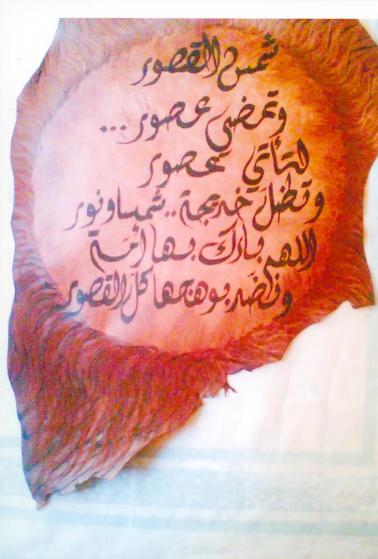 شمس القصور
وتمضي عصور ...
لتأتي عصور
وتظل خديجة .. شمسا ونور
اللهم بارك بها أمة
بوهجها كل القصور